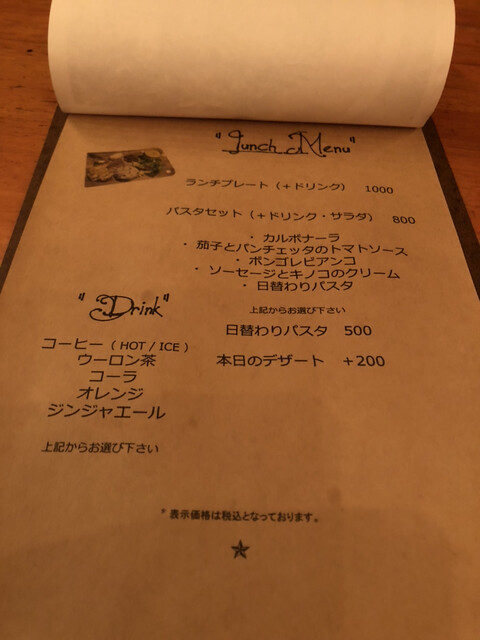 "Lunch Menu"
ランチプレート（＋ドリンク） 1000
パスタセット（＋ドリンク・サラダ） 800
・ カルボナーラ
・ 茄子とパンチェッタのトマトソース
・ ボンゴレビアンコ
・ ソーセージとキノコのクリーム
・ 日替わりパスタ
上記からお選び下さい
日替わりパスタ 500
本日のデザート ＋200
"Drink"
コーヒー（ HOT / ICE ）
ウーロン茶
コーラ
オレンジ
ジンジャエール
上記からお選び下さい
* 表示価格は税込となっております。